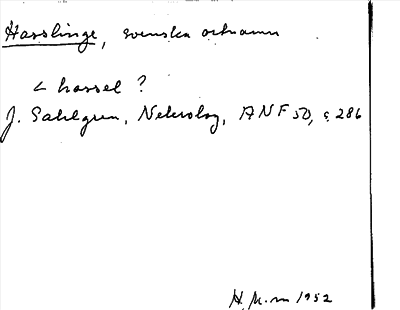 Hasslinge, svenska ortnamn
< hassel ?
J. Sahlgren, Nekrolog, ANF 50, s. 286
H. M-m 1952